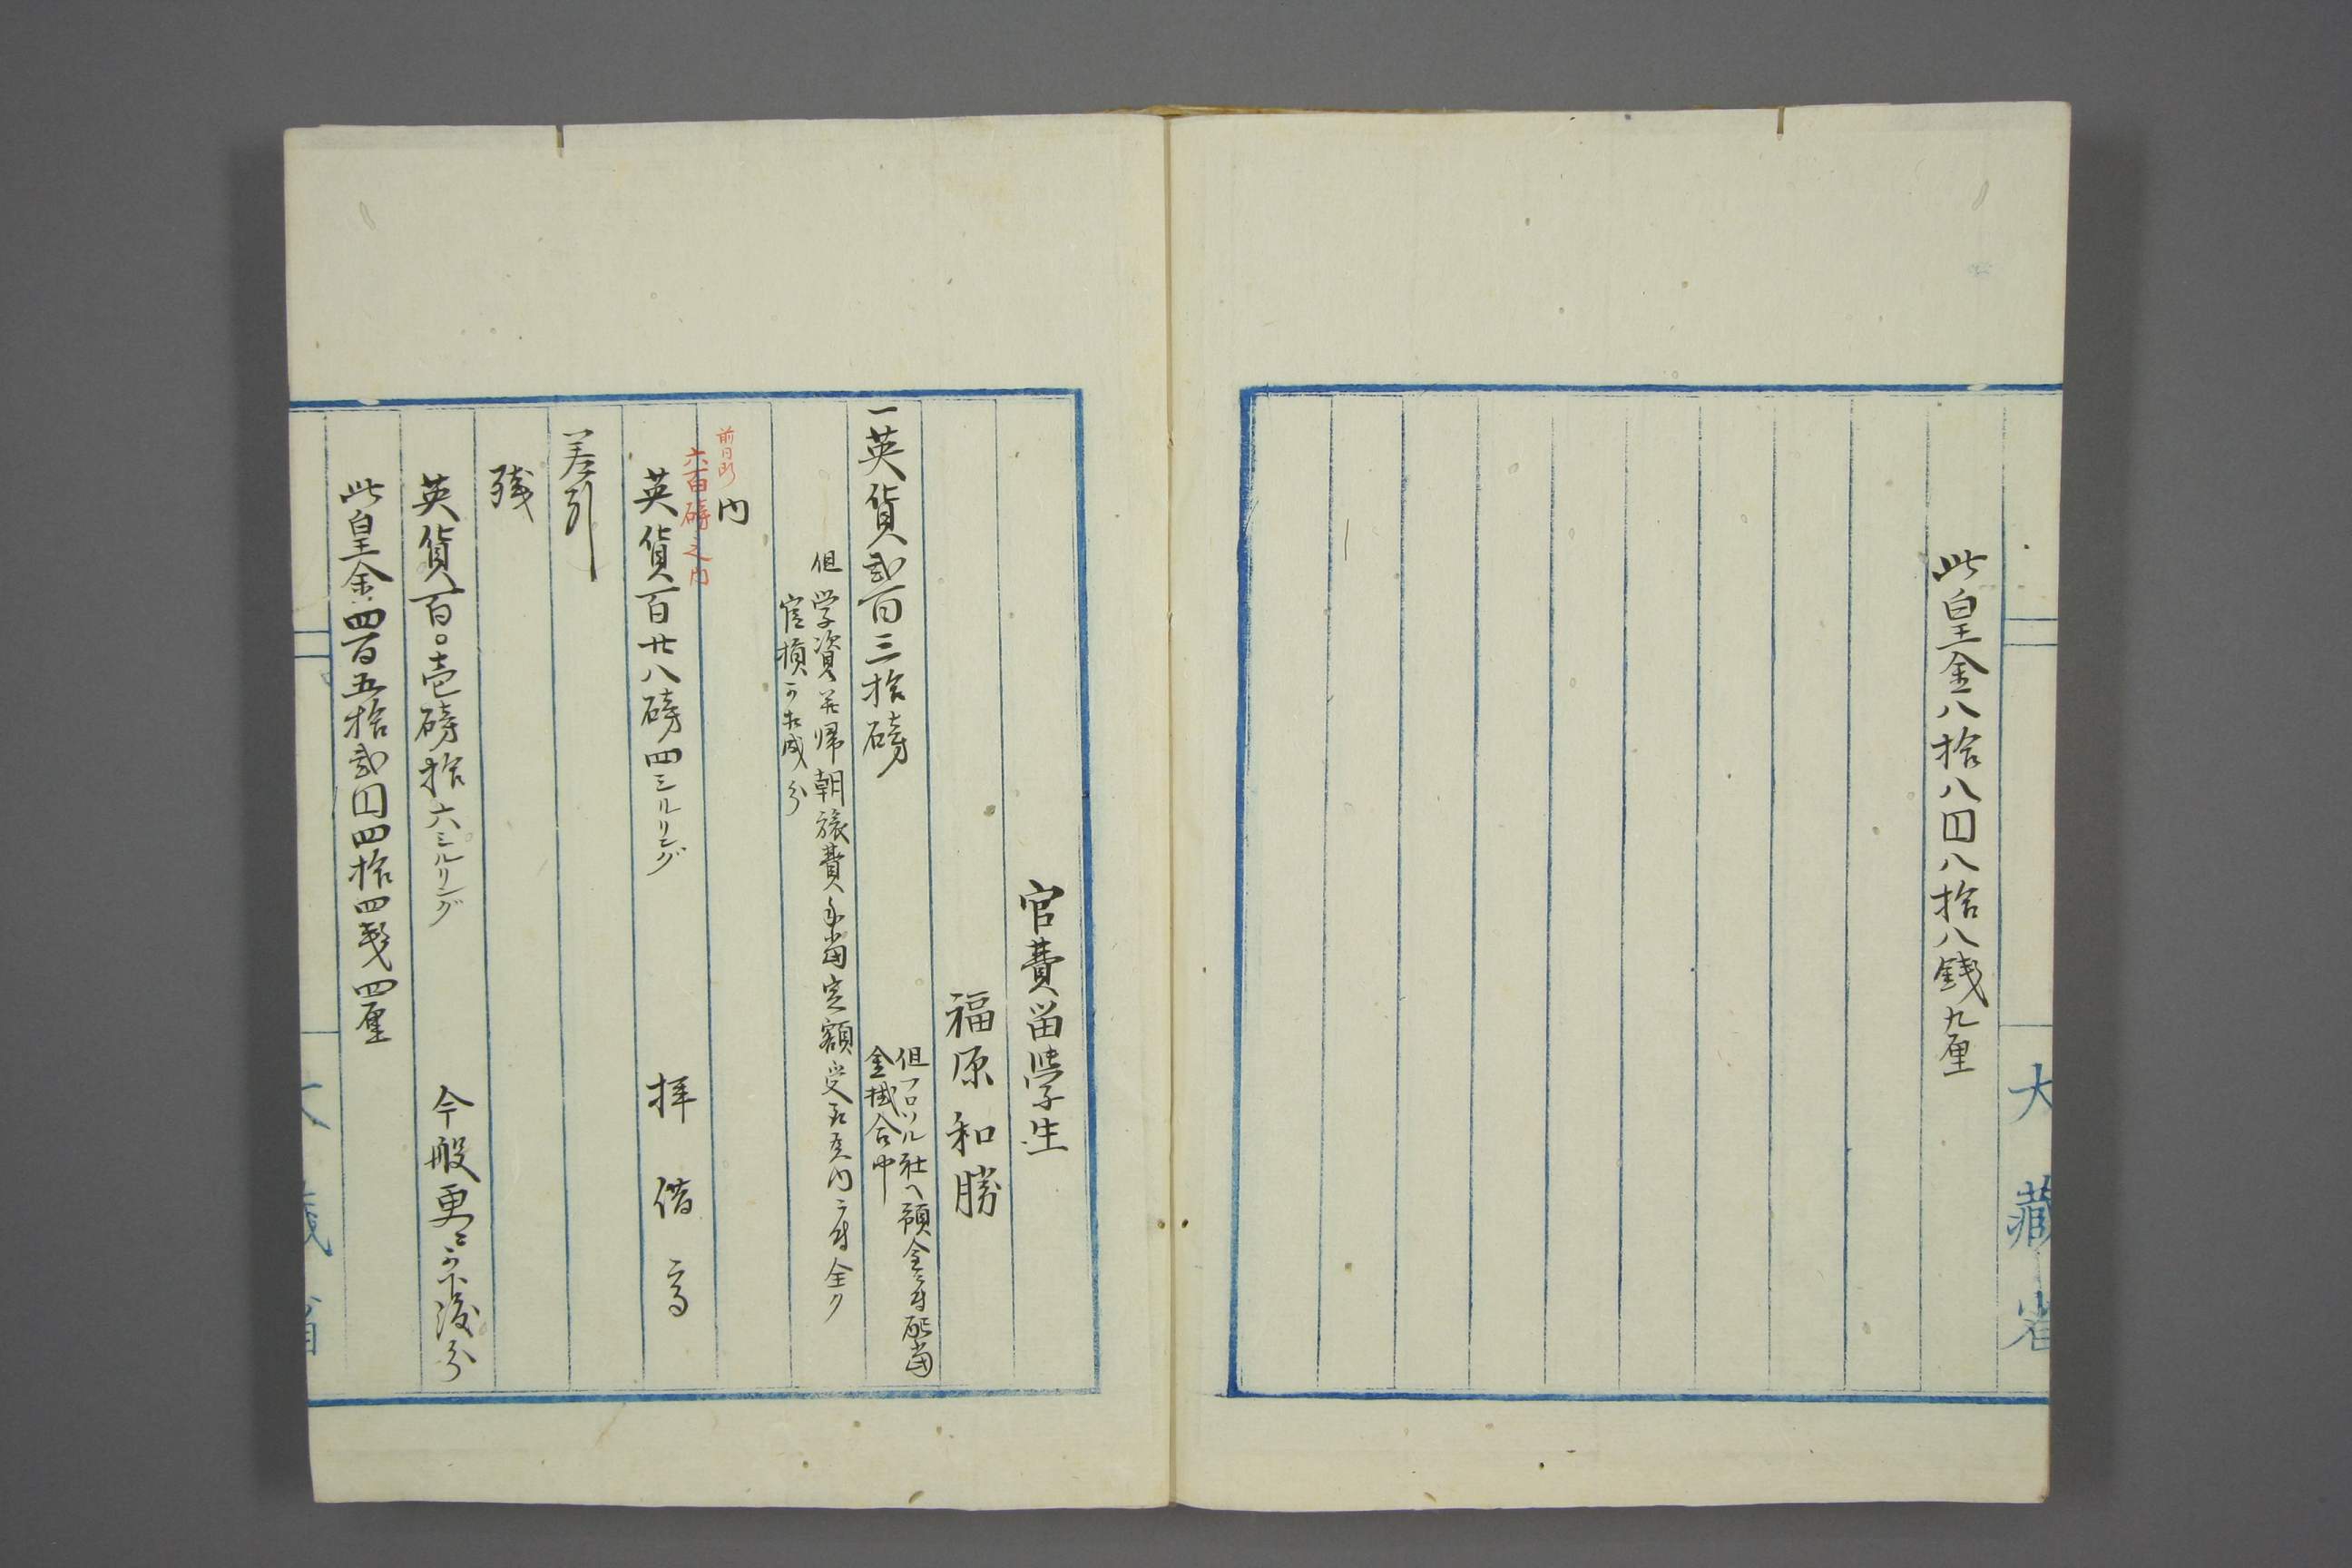 此皇金八拾八円八拾八銭九厘
大藏省
官費留學生
福原和勝
一英貨貳百三拾磅
但フロリル社ヘ預金ニ付
金掛合中
但学資并帰朝旅費手当定額受取高内ニ付全ク
官損可相成分
内
前日所
六百磅之内
英貨百廿八磅四シルリング
拝借高
差引
残
英貨百〇壱磅拾六シルリング
今般更ニ可下渡分
此皇金四百五拾貳円四拾四銭四厘
大藏省